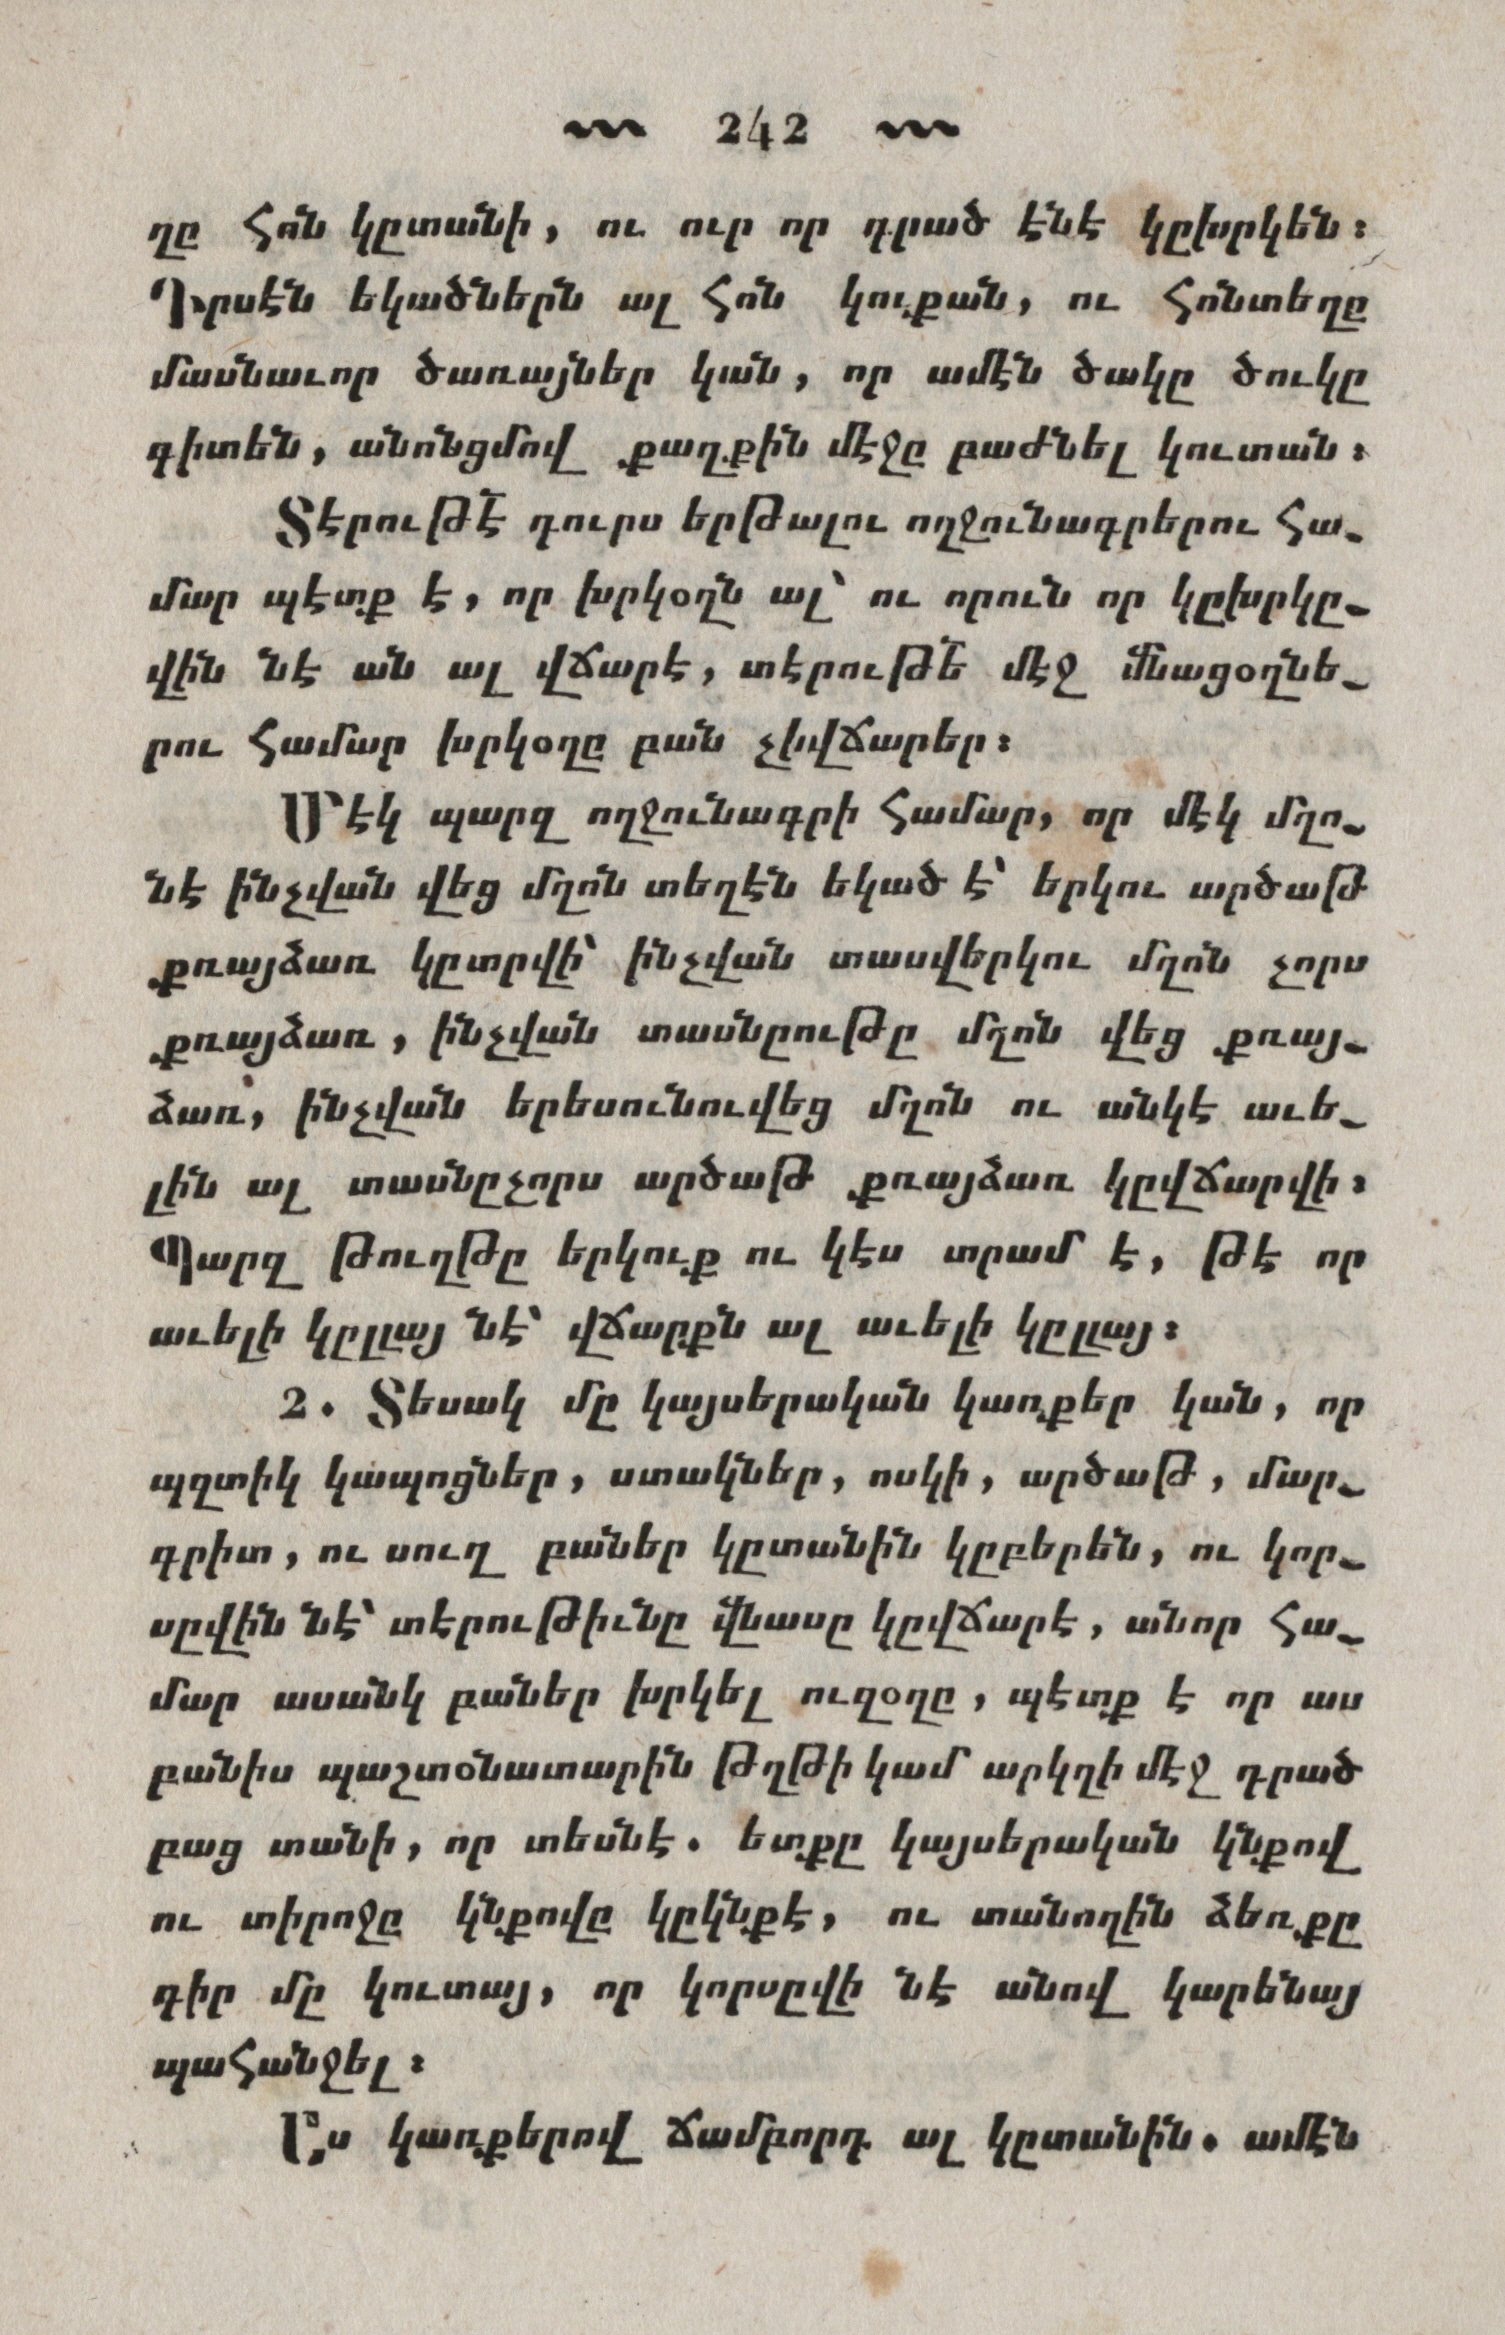 242
ղը հոն կըտանի, ու ուր որ դրած էնէ կըխրկեն։
Դրսէն եկածներն ալ հոն կուքան, ու հոնտեղը
մասնաւոր ծառայներ կան, որ ամէն ծակը ծուկը
գիտեն, անոնցմով քաղքին մէջը բաժնել կուտան։
Տէրութէ դուրս երթալու ողջունագրերու հա-
մար պէտք է, որ խրկօղն ալ՝ ու որուն որ կըխրկը-
վին նէ ան ալ վճարէ, տէրութե մէջ մնացօղնե-
րու համար խրկօղը բան չիվճարեր։
Մէկ պարզ ողջունագրի համար, որ մէկ մղո-
նէ ինչվան վեց մղոն տեղէն եկած է՝ երկու արծաթ
քռայձառ կըտրվի՝ ինչվան տասվերկու մղոն չորս
քռայձառ, ինչվան տասնըութը մղոն վեց քռայ-
ձառ, ինչվան երեսունուվեց մղոն ու անկէ աւե-
լին ալ տասնըչորս արծաթ քռայձառ կըվճարվի։
Պարզ թուղթը երկուք ու կէս տրամ է, թէ որ
աւելի կըլլայ նէ՝ վճարքն ալ աւելի կըլլայ։
2. Տեսակ մը կայսերական կառքեր կան, որ
պզտիկ կապոցներ, ստակներ, ոսկի, արծաթ, մար-
գրիտ, ու սուղ բաներ կըտանին կըբերեն, ու կոր-
սըվին նէ՝ տէրութիւնը վնասը կըվճարէ, անոր հա-
մար ասանկ բաներ խրկել ուղօղը, պէտք է որ աս
բանիս պաշտօնատարին թղթի կամ արկղի մէջ դրած
բաց տանի, որ տեսնէ. ետքը կայսերական կնքով
ու տիրոջը կնքովը կըկնքէ, ու տանողին ձեռքը
գիր մը կուտայ, որ կորսըվի նէ անով կարենայ
պահանջել։
Աս կառքերով ճամբորդ ալ կըտանին. ամէն